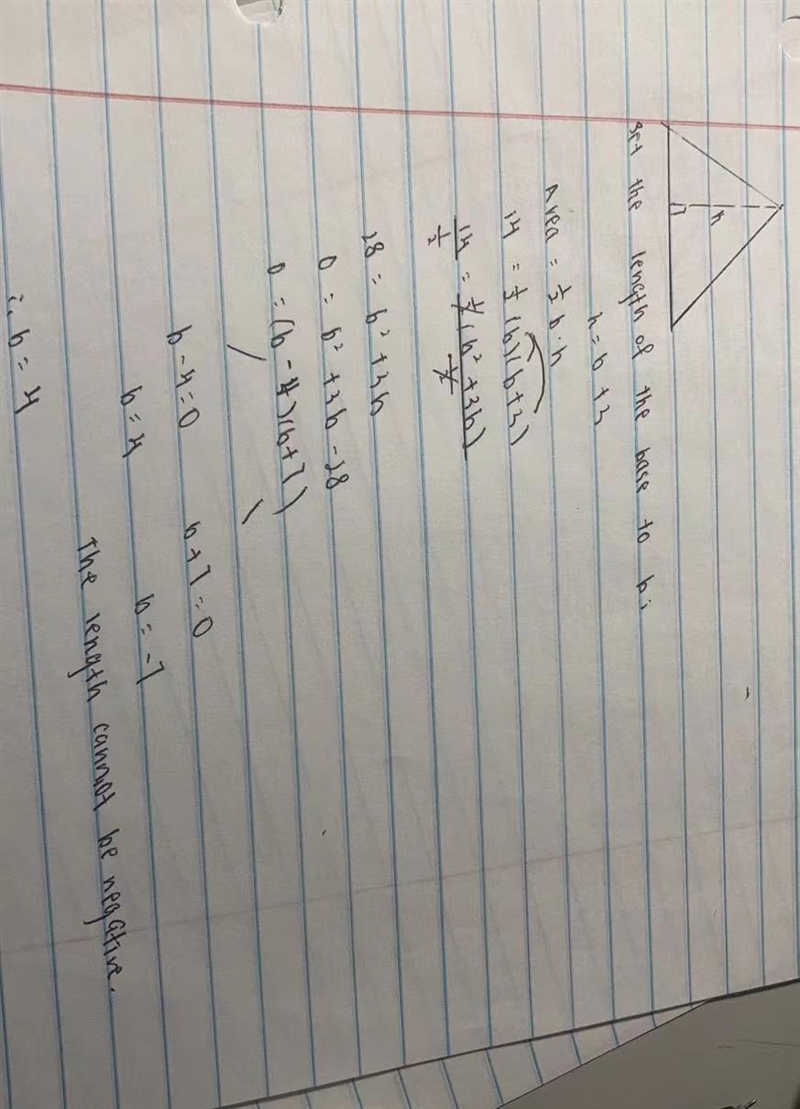 h
Set the length of the base to b;
h = b + 3
Area = 1/2 b · h
14 = 1/2 (b)(b+3)
14 / 1/2 = 1/2 (b² + 3b) / 1/2
28 = b² + 3b
0 = b² + 3b - 28
0 = (b - 4)(b + 7)
b - 4 = 0 b + 7 = 0
b = 4 b = -7
The length cannot be negative.
∴ b = 4